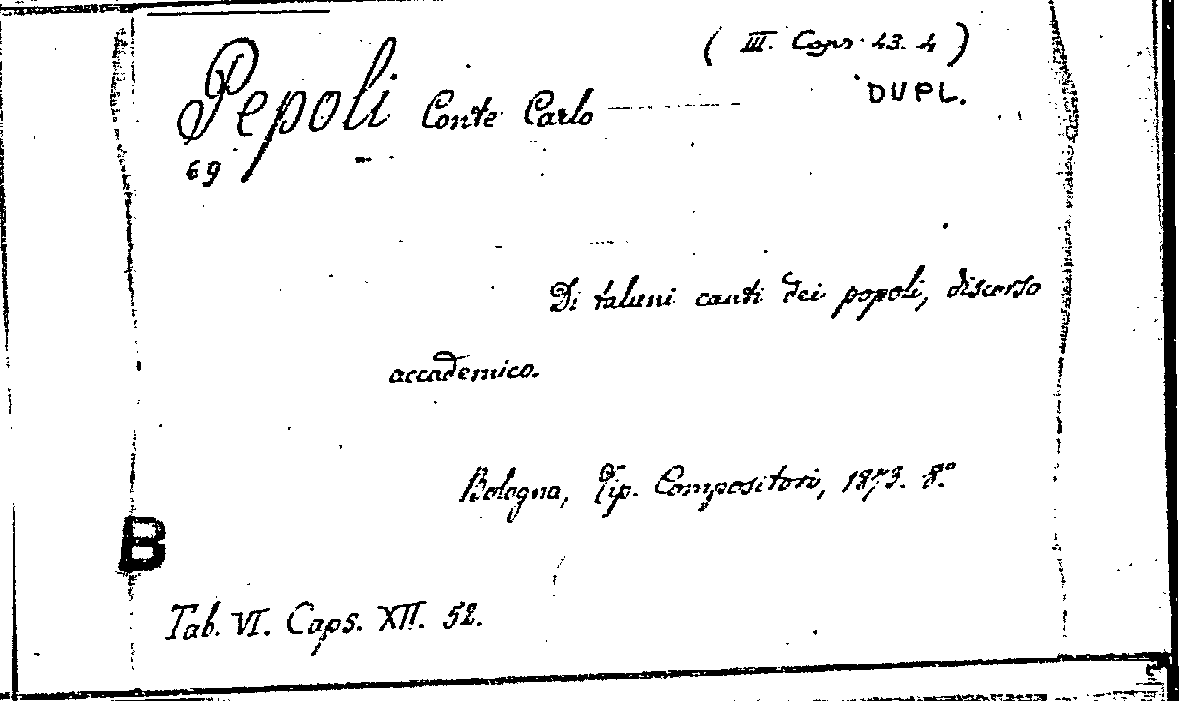 ( III. Caps. 43. 4 )
Pepoli Conte Carlo
DUPL.
69
Di taluni canti dei popoli, discorso
accademico.
Bologna, Tip. Compositori, 1873. 8.°
B
Tab. VI. Caps. XII. 52.